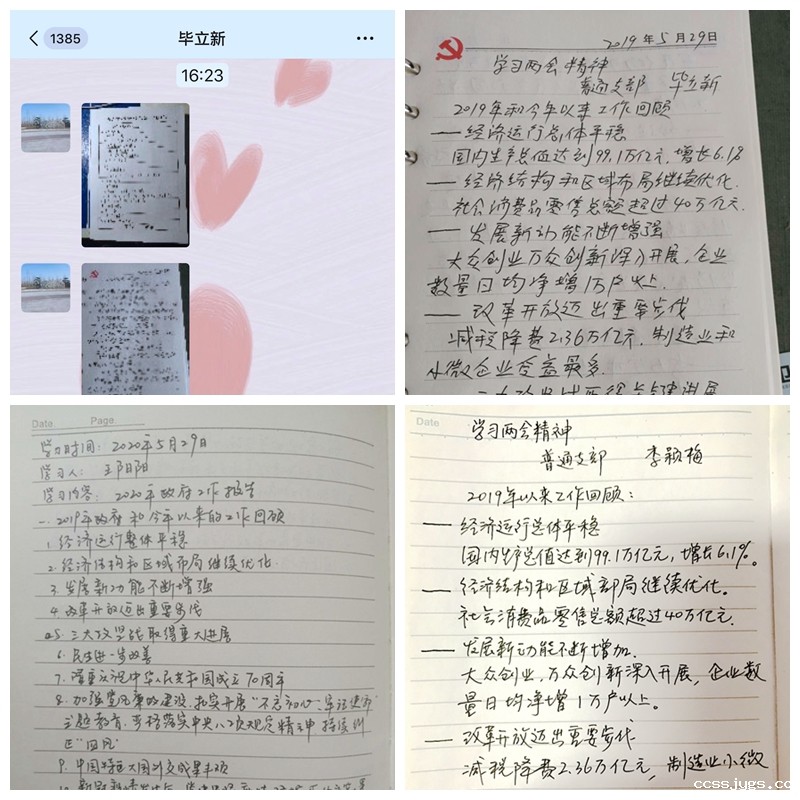 1385
毕立新
16:23
2019年5月29日
学习两会精神
普通支部 毕立新
2019年和今年以来工作回顾
—经济运行总体平稳
国内生产总值达到99.1万亿元,增长6.1%
—经济结构和区域布局继续优化.
社会消费品零售总额超过40万亿元.
—发展新动能不断增强
大众创业万众创新深入开展,企业
数量日均净增1万户以上.
—改革开放迈出重要步伐
减税降费2.36万亿元.制造业和
小微企业受益最多.
Date Page
学习时间:2020年5月29日
学习人:王阳阳
学习内容:2020年政府工作报告
一.2019年政府和今年以来的工作回顾
1.经济运行整体平稳
2.经济结构和区域布局继续优化.
3.发展新功能不断增强
4.改革开放迈出重要步伐
5.三大攻坚战取得重大进展
6.民生进一步改善
7.隆重庆祝中华人民共和国成立70周年
8.加强党风廉政建设,扎实开展"不忘初心、牢记使命"
主题教育,严格落实中央八项规定精神持续纠
"四风"
9.中国特色大国外交成果丰硕
Date
学习两会精神
普通支部 李颖梅
2019年以来工作回顾:
—经济运行总体平稳
国内生产总值达到99.1万亿元,增长6.1%。
—经济结构和区域部局继续优化。
社会消费品零售总额超过40万亿元.
—发展新动能不断增加.
大众创业,万众创新深入开展,企业数
量日均净增1万户以上。
—改革开放迈出重要步伐
减税降费2.36万亿元,制造业小微
ccssjygs.com